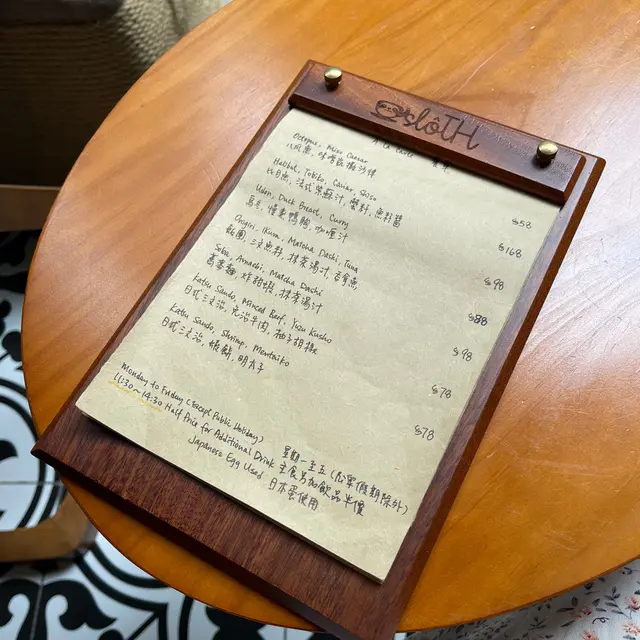 slôTH
À La Carte
Octopus, Miso Caviar
$58
Halibut, Tobiko, Caviar, Shiso
$168
Udon, Duck Breast, Curry
烏冬, 慢煮鴨胸, 咖喱汁
$98
Onigiri, Ikura, Matcha Dashi, Tuna
飯團, 三文魚籽, 抹茶湯汁, 吞拿魚
$88
Soba, Amaebi, Matcha Dashi
蕎麥麵, 炸甜蝦, 抹茶湯汁
$98
Katsu Sando, Minced Beef, Yuzu Kosho
日式三文治, 免治牛肉, 柚子胡椒
$78
Katsu Sando, Shrimp, Mentaiko
日式三文治, 蝦, 明太子
$78
Monday to Friday (Except Public Holiday) 星期一至五 (公眾假期除外)
11:30-14:30 Half Price for Additional Drink 主食另加飲品半價
Japanese Egg Used 日本蛋使用